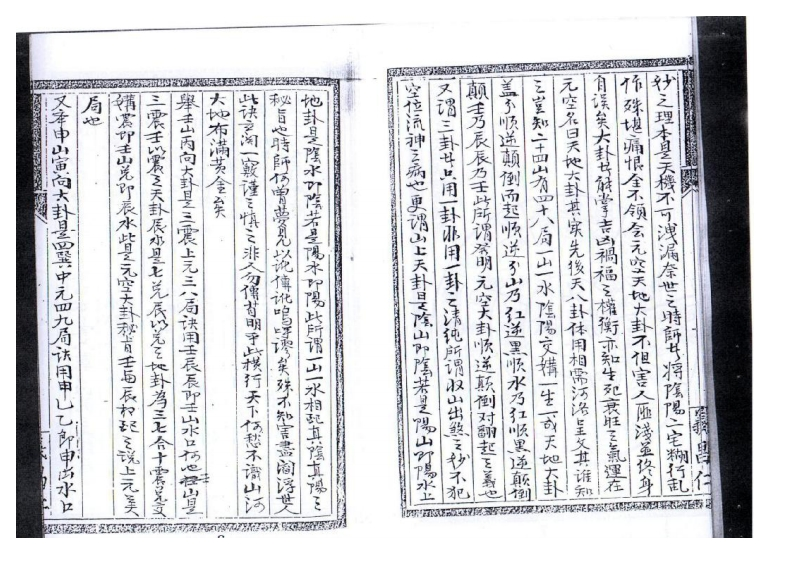 妙之理本是天機不可洩漏奈世之時師廿將陰陽二宅糊行乱
作殊堪痛恨全不領会元空天地大卦不但害人匪淺並終身
自误矣大卦廿能掌吉凶禍福之權衡亦知生死衰旺之氣運在
元空名曰天地大卦其实先後天八卦体用相需河洛呈文其谁知
之豈知二十四山有四十八局一山一水陰陽交媾一生一成天地大卦
盖分順逆顛倒而起順逆分山乃红逆黑順水乃红順黑逆顛倒
顛壬乃辰辰乃壬此所谓發明元空大卦順逆顛倒对翻起之義也
又谓三卦廿只用一卦非用一卦之清纯所谓收山出煞之妙不犯
空位流神之病也更谓山上天卦是陰山即陰若是陽山即陽水上
地卦是陰水即陰若是陽水即陽此所谓一山一水相配真陰真陽之
秘旨也時師何曾夢見以讹傳讹嗚呼謬矣殊不知害盡阎浮世人
此訣天阁一竅謹之慎之非人勿傳昔明乎此横行天下何愁不識山河
大地布滿黄金矣
舉壬山丙向大卦是三震上元三八局訣用壬辰辰即壬山水口何也山是
三震壬以震之天卦辰水是七兑辰以兑之地卦為三七合十震兑交
媾震即壬山兑即辰水此是元空大卦秘旨壬與辰相配之说上元美
局也
又举申山寅向大卦是四巽中元四九局诀用申乙乙即申山水口
義昌仁